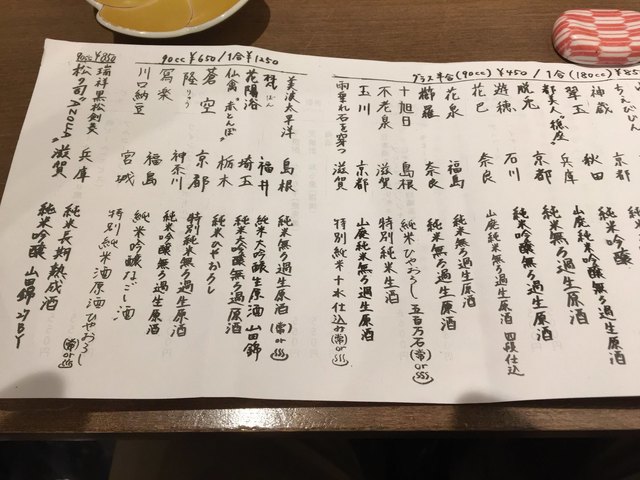 グラス半合(90cc) ¥450 / 1合(180cc) ¥85
ちえびじん
神蔵 秋田
翠玉 兵庫 山廃純米無ろ過生原酒
都美人 京都 純米無ろ過生原酒
脱兎 石川 純米吟醸無ろ過生原酒
遊穂
花巴 奈良 山廃純米無ろ過生原酒 四段仕込
花泉 福島 純米無ろ過生原酒
櫛羅 奈良 純米無ろ過生原酒
十旭日 島根 純米ひやおろし 五百万石(常)or
不老泉 滋賀 特別純米生酒
玉川 京都 山廃純米無ろ過生原酒
雨垂れ石を穿つ 滋賀 特別純米十水仕込み(常)or
90cc ¥650 / 1合 ¥1250
美波太平洋 島根 純米無ろ過生原酒(常)or
梵 ぼん 福井 純米大吟醸生原酒 山田錦
花陽浴 埼玉 純米大吟醸無ろ過原酒
仙禽 "赤とんぼ" 栃木 純米ひやおろし
蒼空 京都 特別純米無ろ過生原酒
隆 りゅう 神奈川 純米無ろ過生原酒
寫楽 福島 純米吟醸無ろ過生原酒
川口納豆 宮城 純米吟醸なごし酒
特別純米酒原酒ひやおろし
90cc ¥850
瑞祥黒松剣菱 兵庫 純米長期熟成酒(常)or
松の司 "Azolla" 滋賀 純米吟醸 山田錦 27BY